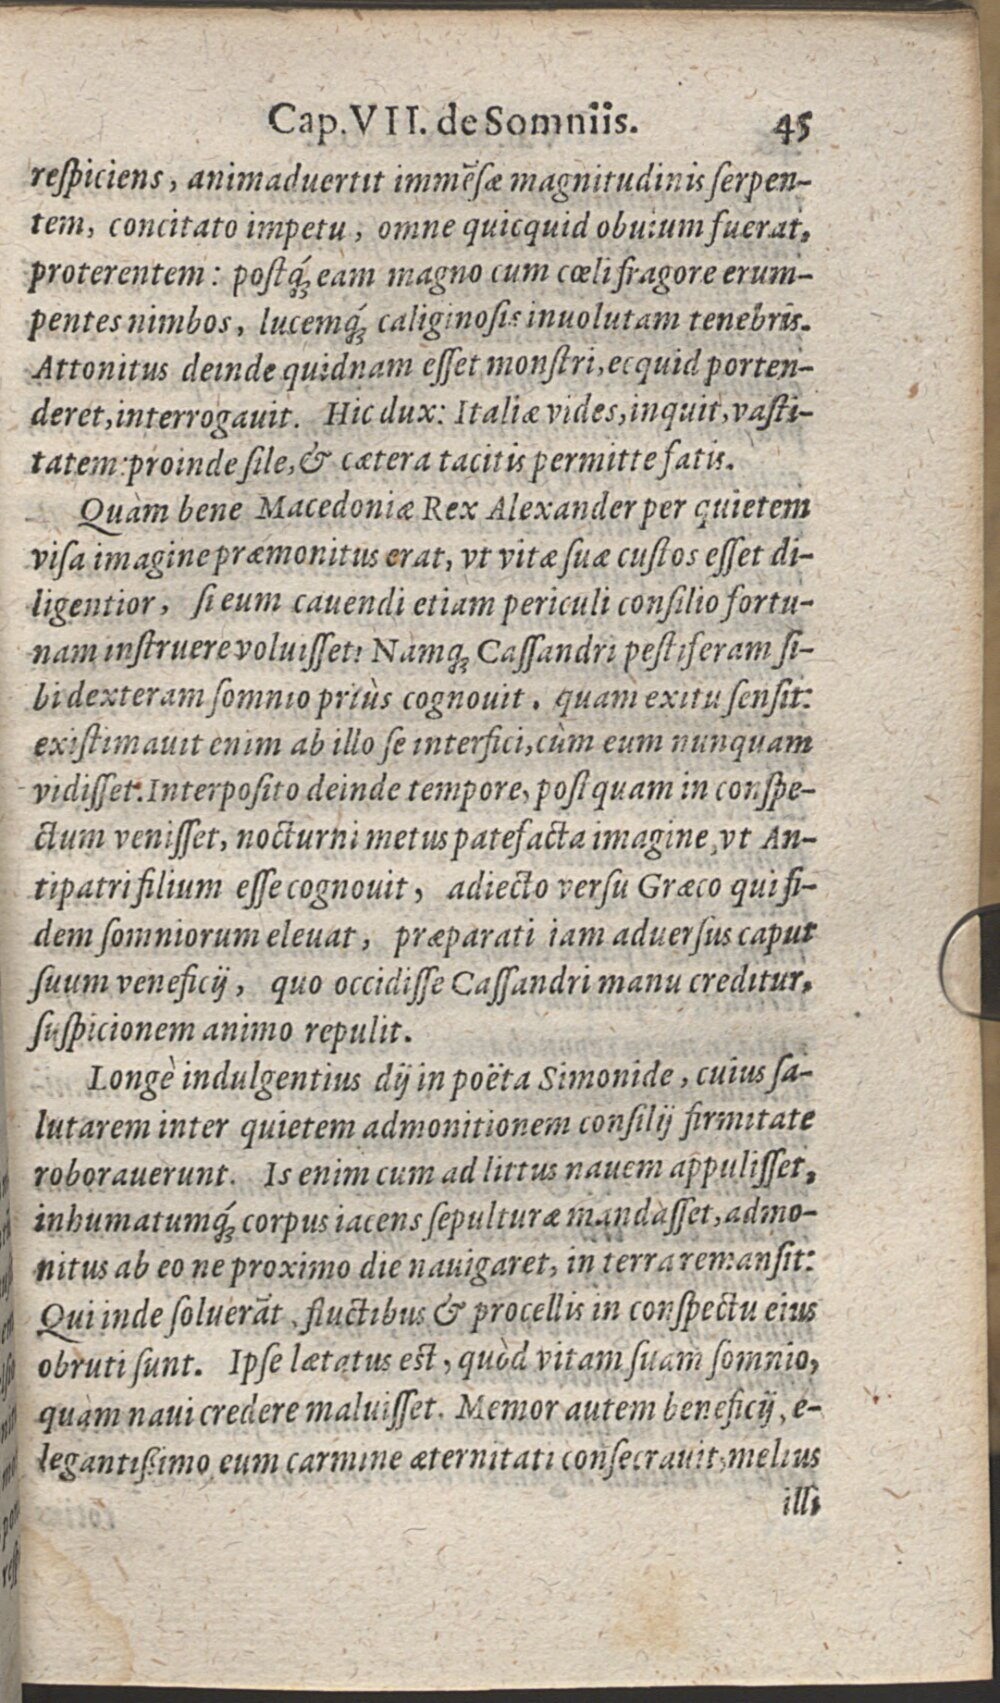 Cap. VII. de Somniis. 45
reſpiciens, animaduertit immẽſæ magnitudinis ſerpen-
tem, concitato impetu, omne quicquid obuium fuerat,
proterentem: poſtq́; eam magno cum cœli fragore erum-
pentes nimbos, lucemq́; caliginoſis inuolutam tenebris.
Attonitus deinde quidnam eſſet monſtri, ecquid porten-
deret, interrogauit. Hic dux: Italiæ vides, inquit, vaſti-
tatem: proinde ſile, & cætera tacitis permitte fatis.
Quàm bene Macedoniæ Rex Alexander per quietem
viſa imagine præmonitus erat, vt vitæ ſuæ cuſtos eſſet di-
ligentior, ſi eum cauendi etiam periculi conſilio fortu-
nam inſtruere voluiſſet: Namq; Caſſandri peſtiferam ſi-
bi dexteram ſomnio priùs cognouit, quam exitu ſenſit:
exiſtimauit enim ab illo ſe interfici, cùm eum nunquam
vidiſſet. Interpoſito deinde tempore, poſtquam in conſpe-
ctum veniſſet, nocturni metus patefacta imagine, vt An-
tipatri filium eſſe cognouit, adiecto verſu Græco qui fi-
dem ſomniorum eleuat, præparati iam aduerſus caput
ſuum veneficij, quo occidiſſe Caſſandri manu creditur,
ſuſpicionem animo repulit.
Longè indulgentius dij in poëta Simonide, cuius ſa-
lutarem inter quietem admonitionem conſilij firmitate
roborauerunt. Is enim cum ad littus nauem appuliſſet,
inhumatumq́; corpus iacens ſepulturæ mandàſſet, admo-
nitus ab eo ne proximo die nauigaret, in terra remanſit:
Qui inde ſoluerãt, fluctibus & procellis in conſpectu eius
obruti ſunt. Ipſe lætatus eſt, quòd vitam ſuam ſomnio,
quàm naui credere maluiſſet. Memor autem beneficij, e-
legantiſsimo eum carmine æternitati conſecrauit, melius
illi